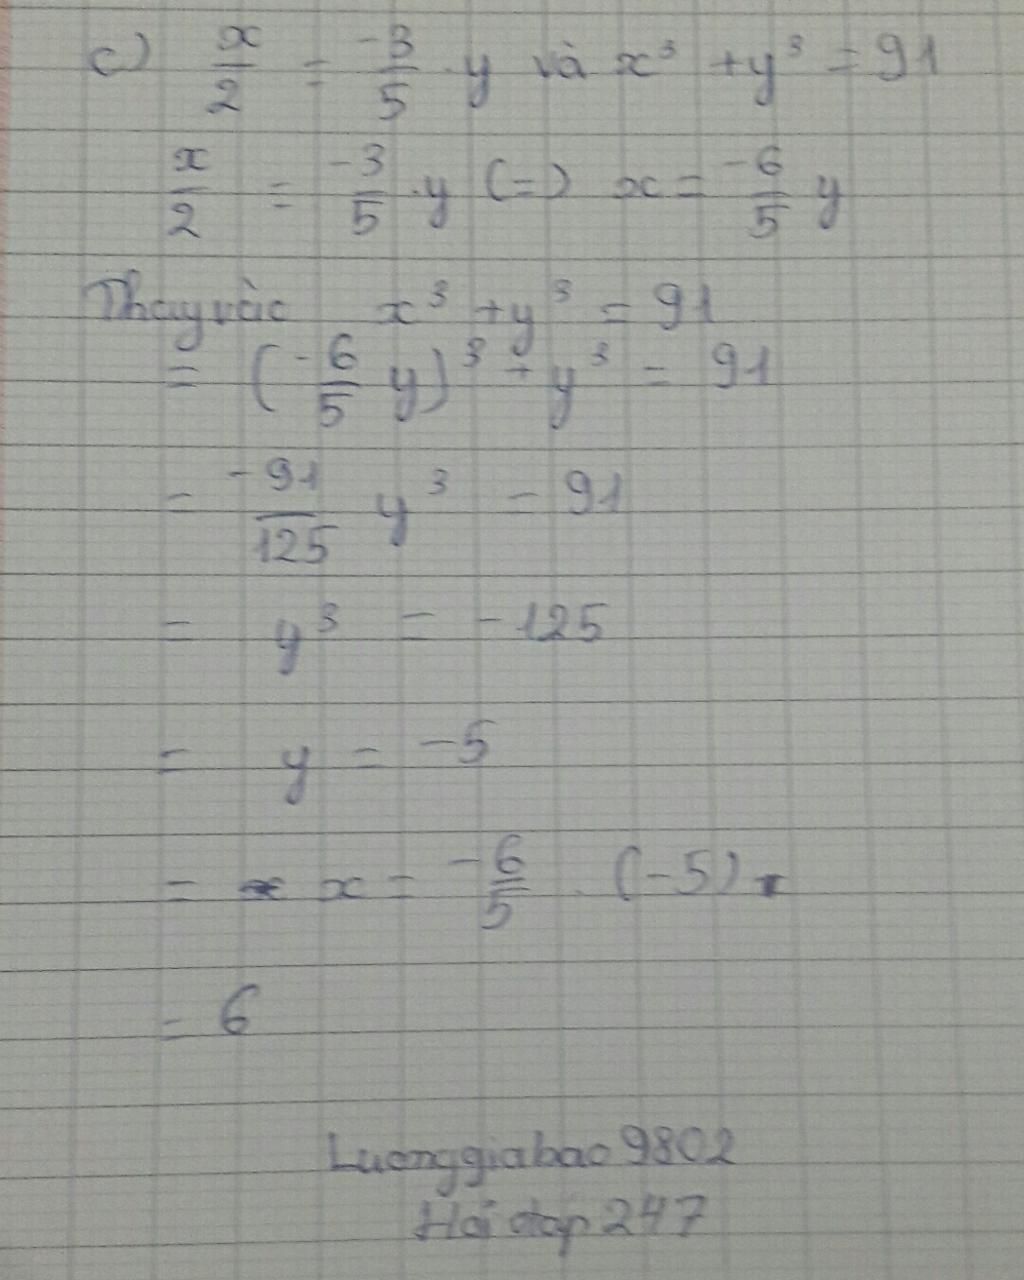 c) x/2 = -3/5 . y và x³ + y³ = 91
x/2 = -3/5 . y (=) x = -6/5 y
Thay vào x³ + y³ = 91
= (-6/5 y)³ + y³ = 91
= -91/125 y³ = 91
= y³ = -125
= y = -5
= x = -6/5 . (-5)
= 6
Luonggiabao9802
Hỏi đáp 247